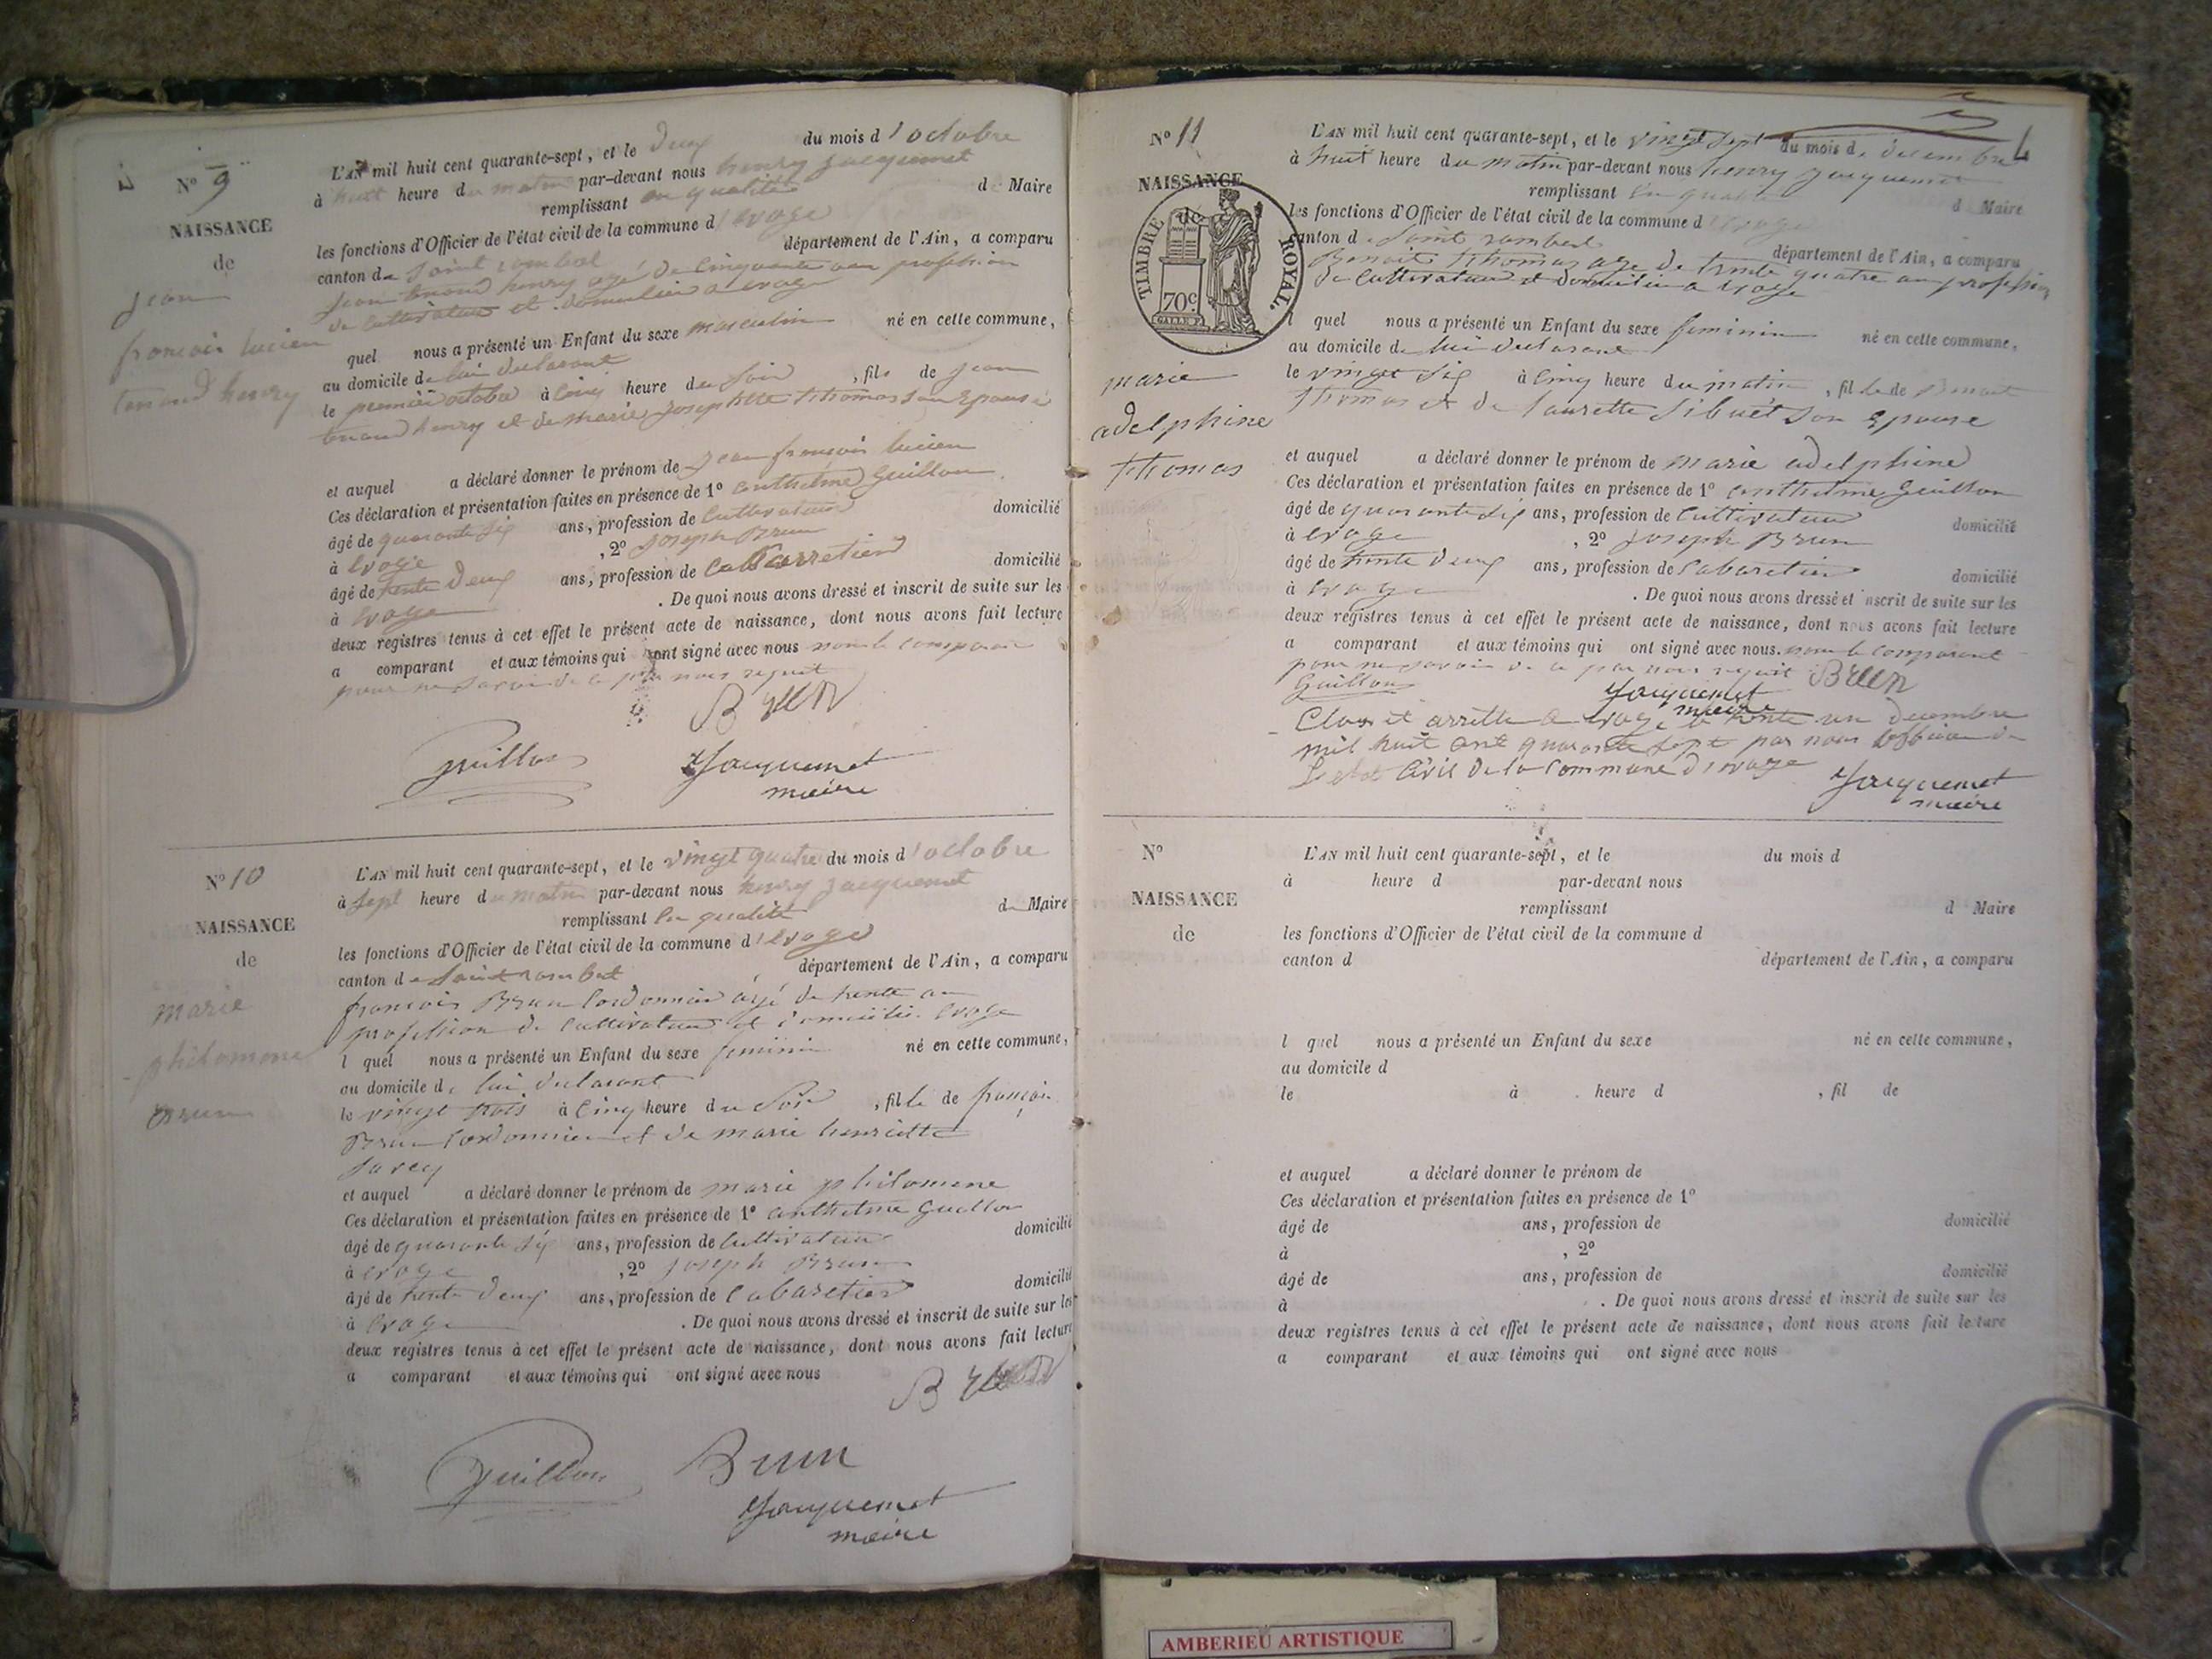 N° 9
NAISSANCE
de
jean
francois lucien
tenand henry
L'AN mil huit cent quarante-sept, et le deux du mois d'octobre
à huit heure du matin par-devant nous henry jacquemet
remplissant en qualité d Maire
les fonctions d'Officier de l'état civil de la commune d'evoge
canton de Saint rambert département de l'Ain, a comparu
jean tenand henry agé de cinquante an profession
de cultivateur et domicilié a evoge
quel nous a présenté un Enfant du sexe masculin né en cette commune,
au domicile de lui declarant
le premier octobre à cinq heure du soir, fils de jean
tenand henry et de marie josephtte thomas son Epouse
et auquel a déclaré donner le prénom de jean françois lucien
Ces déclaration et présentation faites en présence de 1° anthelme Guillon
âgé de quarante six ans, profession de cultivateur domicilié
à evoge, 2° joseph Brun
âgé de trente deux ans, profession de cabarretier domicilié
à evoge. De quoi nous avons dressé et inscrit de suite sur les
deux registres tenus à cet effet le présent acte de naissance, dont nous avons fait lecture
a comparant et aux témoins qui ont signé avec nous non le comparant
pour ne savoir de ce par nous requit
Brun
Guillon Jacquemet
maire
N° 10
NAISSANCE
de
marie
philomene
Brun
L'AN mil huit cent quarante-sept, et le vingt quatre du mois d'octobre
à sept heure du matin par-devant nous henry jacquemet
remplissant en qualité d Maire
les fonctions d'Officier de l'état civil de la commune d'evoge
canton de Saint rambert département de l'Ain, a comparu
francois Brun Cordonnier agé de trente an
profession de cultivateur et domicilié evoge
l quel nous a présenté un Enfant du sexe feminin né en cette commune,
au domicile de lui declarant
le vingt trois à cinq heure du soir, fille de françois
Brun Cordonnier et de marie henriette
Savey
et auquel a déclaré donner le prénom de marie philomene
Ces déclaration et présentation faites en présence de 1° anthelme Guillon
âgé de quarante six ans, profession de cultivateur domicilié
à evoge, 2° joseph Brun
âgé de trente deux ans, profession de cabaretier domicilié
à evoge. De quoi nous avons dressé et inscrit de suite sur les
deux registres tenus à cet effet le présent acte de naissance, dont nous avons fait lecture
a comparant et aux témoins qui ont signé avec nous
Brun
Guillon Brun
Jacquemet
maire
N° 11
NAISSANCE
de
TIMBRE ROYAL.
70c.
marie
adelphine
thomas
L'AN mil huit cent quarante-sept, et le vingt sept du mois de decembre
à huit heure du matin par-devant nous henry jacquemet
remplissant en qualité d Maire
les fonctions d'Officier de l'état civil de la commune d'evoge
canton de Saint rambert département de l'Ain, a comparu
Benoit thomas age de trente quatre an profession
de cultivateur et domicilié a evoge
l quel nous a présenté un Enfant du sexe feminin né en cette commune,
au domicile de lui declarant
le vingt six à cinq heure du matin, fille de Benoit
thomas et de laurette Sibuet son Epouse
et auquel a déclaré donner le prénom de marie adelphine
Ces déclaration et présentation faites en présence de 1° anthelme Guillon
âgé de quarante six ans, profession de cultivateur domicilié
à evoge, 2° joseph Brun
âgé de trente deux ans, profession de cabaretier domicilié
à evoge. De quoi nous avons dressé et inscrit de suite sur les
deux registres tenus à cet effet le présent acte de naissance, dont nous avons fait lecture
a comparant et aux témoins qui ont signé avec nous. non le comparant
pour ne savoir de ce par nous requit Brun
Guillon Jacquemet
maire
Clos et arrette a evoge le trente un decembre
mil huit cent quarante sept par nous officier de
L'etat civil de la commune d'evoge
Jacquemet
maire
N°
NAISSANCE
de
L'AN mil huit cent quarante-sept, et le du mois d
à heure d par-devant nous
remplissant d Maire
les fonctions d'Officier de l'état civil de la commune d
canton d département de l'Ain, a comparu
l quel nous a présenté un Enfant du sexe né en cette commune,
au domicile d
le à heure d, fil de
et auquel a déclaré donner le prénom de
Ces déclaration et présentation faites en présence de 1°
âgé de ans, profession de domicilié
à, 2°
âgé de ans, profession de domicilié
à. De quoi nous avons dressé et inscrit de suite sur les
deux registres tenus à cet effet le présent acte de naissance, dont nous avons fait lecture
a comparant et aux témoins qui ont signé avec nous
AMBERIEU ARTISTIQUE